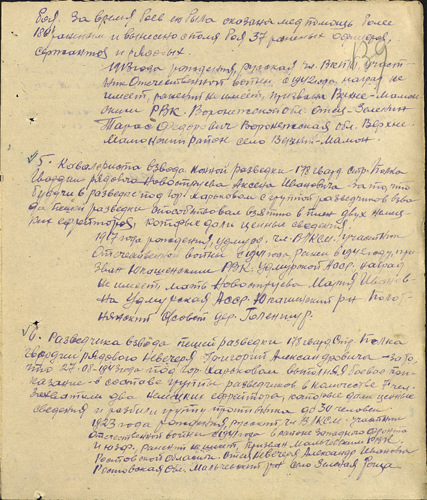 боя. За время боев ею была оказана медпомощь более
180 раненым и вынесено с поля боя 37 раненых офицеров,
сержантов и рядовых.
1913 года рождения, русская, чл. ВКП(б), участ-
ник Отечественной войны с года, наград не
имеет, ранений не имеет, призвана Верхне-Мамон-
ским РВК Воронежской обл. Отец
Тарас Федорович Воронежская обл. Верхне-
Мамонский район село Верхний-Мамон
5. Кавалериста взвода конной разведки 178 гвард. стр. полка
гвардии рядового Новоструева Аксена Ивановича за то, что
будучи в разведке под гор. Харьковом с группой разведчиков взво-
да пешей разведки способствовал взятию в плен двух немец-
ких ефрейторов, которые дали ценные сведения.
1917 года рождения, удмурт, чл. ВЛКСМ, участник
Отечественной войны с года, ранен в году, при-
зван РВК Удмуртской АССР, наград
не имеет, мать Новоструева Мария Иванов-
на Удмурская АССР, р-н
с/совет дер.
6. Разведчика взвода пешей разведки 178 гвард. стр. полка
гвардии рядового Невечеря Григорий Александровича – за то,
что 27-08-1943 года под гор. Харьковом выполняя боевое при-
казание – в составе группы разведчиков в количестве 7 чел.
захватили два немецких ефрейтора, которые дали ценные
сведения и разбили группу противника до 30 человек
1923 года рождения, русский, чл. ВЛКСМ, участник
Отечественной войны с года в Западного фронта
и ранений не имеет, призван Мальчевским РВК
Ростовской области. Отец Невечеря Александр Иванович
Ростовская обл. Мальчевский р-н село Зеленая Роща